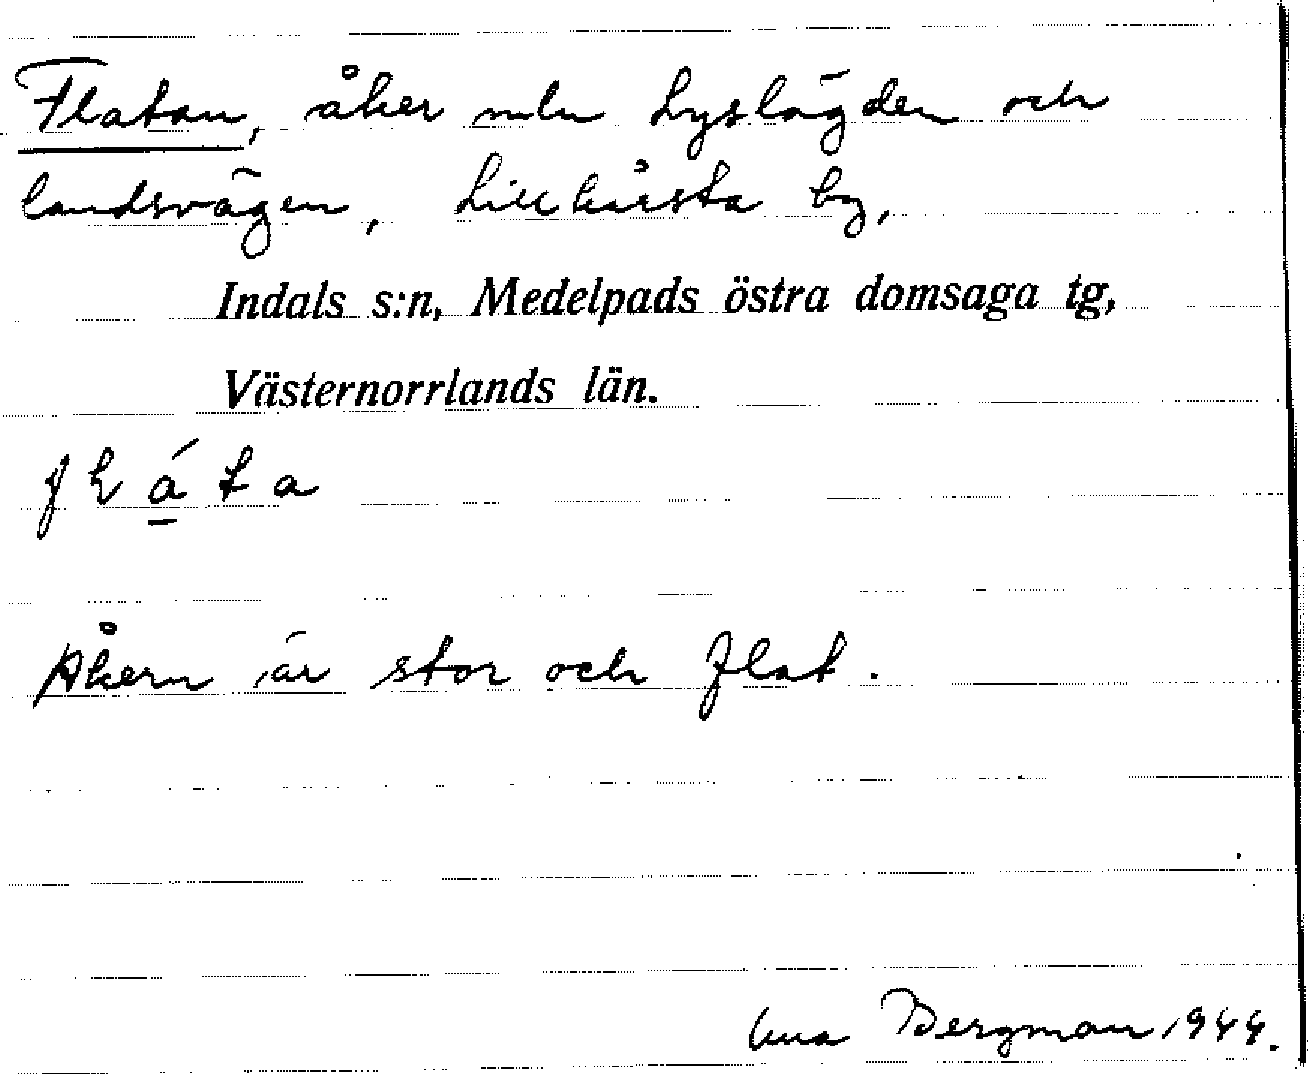 Flatan, åker mln Lyslägden och
landsvägen, Lillhärsta by,
Indals s:n, Medelpads östra domsaga tg,
Västernorrlands län.
fláta
Åkern är stor och flat.
Bergman 1944.